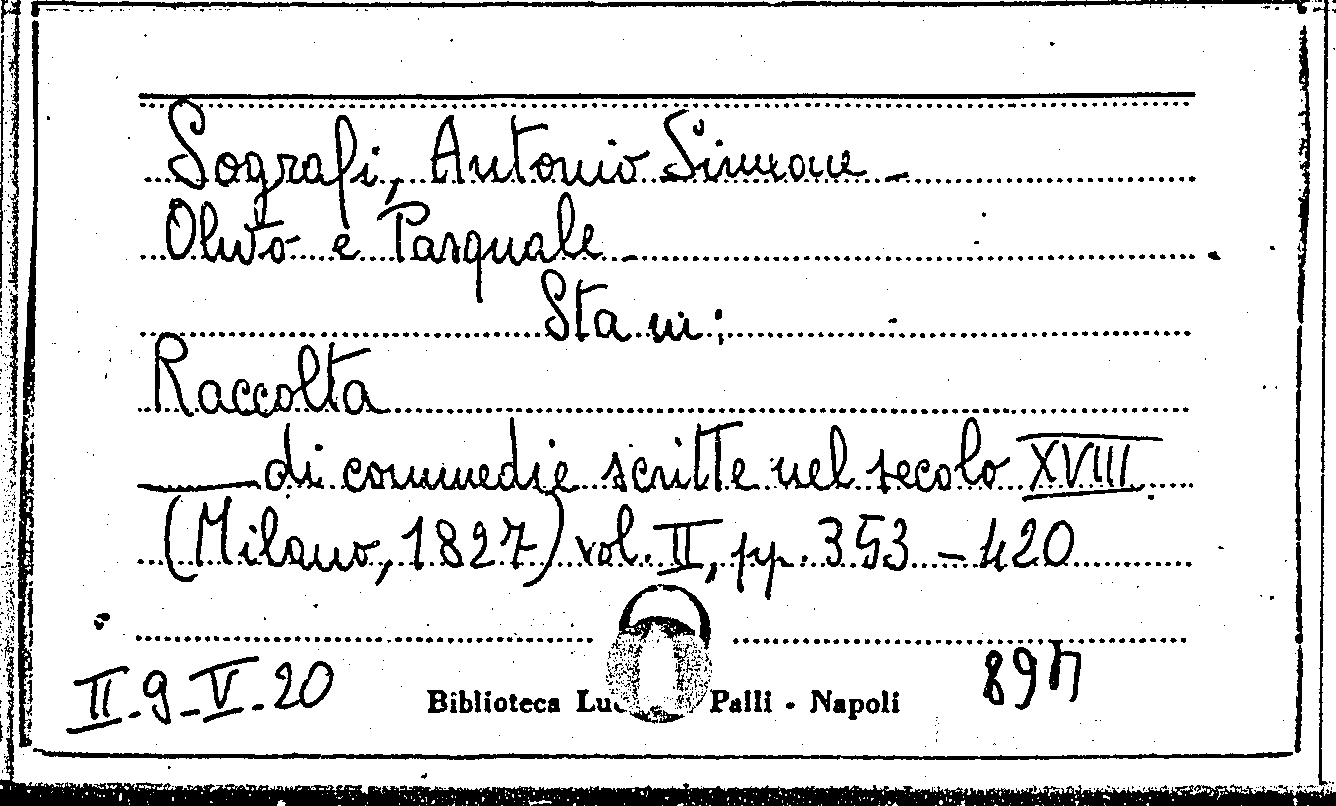 Sografi, Antonio Simone -
Olivo e Pasquale -
Sta in:
Raccolta
di commedie scritte nel secolo XVIII
(Milano, 1827) vol. II, pp. 353 - 420
II-9-V-20
Biblioteca Palli - Napoli